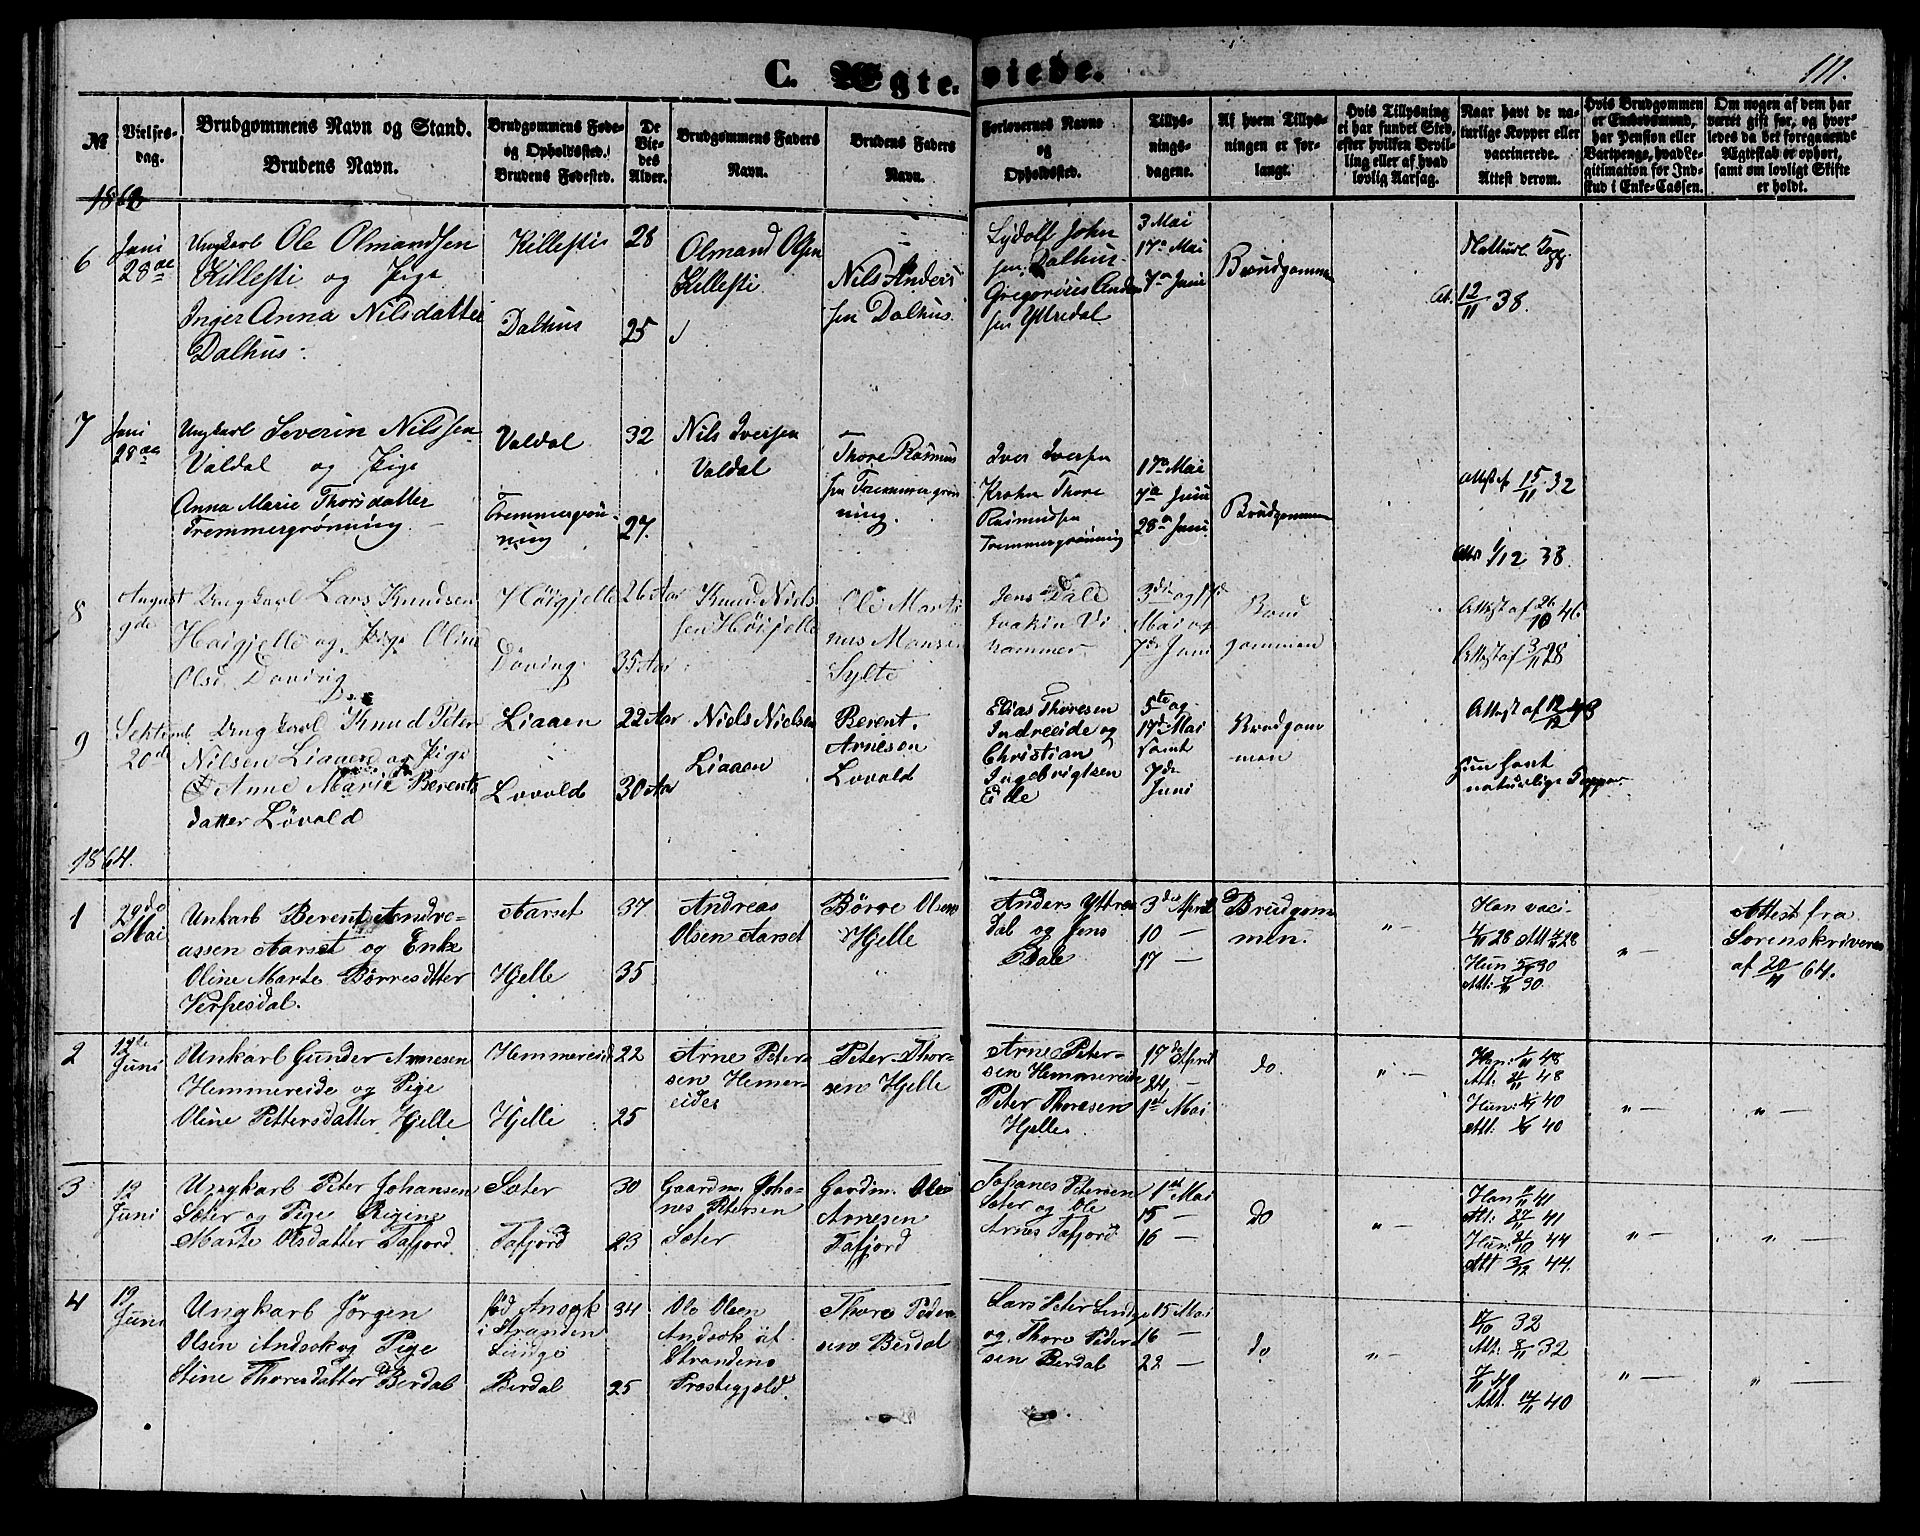 C. Ægteviede.
111.
№
Vielsesdag.
Brudgommens Navn og Stand.
Brudens Navn.
Brudgommens Fødeog Opholdssted.
Brudens Fødested.
De Viedes Alder.
Brudgommens Faders Navn.
Brudens Faders Navn.
Forlovernes Navne og Opholdssted.
Tillysningsdagene.
Af hvem Tillysningen er forlangt.
Hvis Tillysning ei har fundet Sted, efter hvilken Bevilling eller af hvad lovlig Aarsag.
Naar havt de naturlige Kopper eller vaccinerede. Attest derom.
Hvis Brudgommen er Embedsmand, har Pension eller Vartpenge, hvad Legitimation for Indskud i Enke-Cassen.
Om nogen af dem har været gift før, og hvorledes da det foregaaende Ægteskab er ophørt, samt om lovligt Skifte er holdt.
6
Juni
28de
Ungkarl Ole Olmandsen
Killesti og Pige
Inger Anna Nilsdatter
Dalhus
Killesti
Dalhus
28
25
Olmand Olsen
Killesti
Nils Anders
sen Dalhus
Lydolf John
sen Dalhus
Gregorius Anders
sen Yttredal
3 Mai
17de Mai
7de Juni
Brudgommen
At. 12/11 38.
7
Juni
28de
Ungkarl Severin Nilssen
Valdal og Pige
Anna Marie Thorsdatter
Fremmergrønning
Valdal
Fremmergrøn
ning
32
27
Nils Iversen
Valdal
Thore Rasmus
sen Fremmergrøn
ning.
Iver Iversen
Krohn Thore
Rasmusen
Fremmergrønning
17de Mai
7de Juni
28de Juni
Brudgommen
Attest af 15/11 32
1/12 38
8
August
9de
Ungkarl Lars Knudsen
Høigjelle og Pige Oline
Olsd. Døving
Høigjelle
Døving
26 Aar
35 Aar
Knud Niels
sen Høigjelle
Ole Marti
nus Monsen
Sylte
Jens Dale
Joakim Vi
nammer
3die og 17de
Mai og
7de Juni
Brud
gommen
Attest af 26/10 46
Attest af 3/11 28
9
Septemb.
20de
Ungkarl Knud Peter
Nilsen Liaaen og Pige
Anne Marie Berents
datter Løvold
Liaaen
Lovold
22 Aar
30 Aar
Niels Nielsen
Liaaen
Berent
Arnesen
Lovold
Elias Thoresen
Indreeide og
Christian
Ingebrigtsen
Eide
5te og
17de Mai
samt
7de
Juni
Brudgom
men
Attest af 12/12 43
Hun havt
naturlige Kopper.
1864.
1
29de
Mai
Unkarl Berent Andre-
assen Aarset og Enke
Oline Marte Børresdtter
Verpesdal.
Aarset
Hjelle
37
35
Andreas
Olsen Aarset
Børre Olsen
Hjelle
Anders Yttre
dal og Jens
Dale
3die April
10 —
17 —
Brudgom
men.
" —
Han vaci-
28 Att 28
Hun 30
Att: 30
" —
Attest fra
Sorenskriveren
af 20/4 64.
2
12te
Juni
Unkarl Gunder Arnesen
Hemmereide og Pige
Oline Pettersdatter Hjelle
Hemmereide
Hjelle
22
25
Arne Peter-
sen Hemer-
eide
Peter Thor-
sen Hjelle
Arne Peter-
sen Hemmereide
Peter Thoresen
Hjelle.
17de April
24 —
1ste Mai
do.
" —
Han: 48
Att: 48
Hun: 40
Att: 40
" —
" —
3
12
Juni
Ungkarl Peter Johansen
Sæter og Pige Regine
Marte Olsdatter Tafjord
Sæter
Tafjord
30
23
Gaardm. Joha-
nes Petersen
Sæter
Gardm. Ole
Arnesen
Tafjord
Johanes Petersen
Sæter og Ole
Arnes Tafjord
1ste Mai
15 —
16 —
do
" —
Han 41
Att: 27/11 41
Hun: 44
Att 3/12 44.
" —
" —
4
12
Juni
Ungkarl Jørgen
Olsen Andsok og Pige
Stine Thoresdatter Berdal
fød Ansok
i Stranden
Linge
Berdal
34
25
Ole Olsen
Andsok af
Strandens
Præstegjeld.
Thore Peder
sen Berdal
Lars Peter Linge
og Thore Peder
sen Berdal
15 Mai
16 —
22 —
do
" —
32
Att: 8/11 32
40
Att. 40
" —
" —